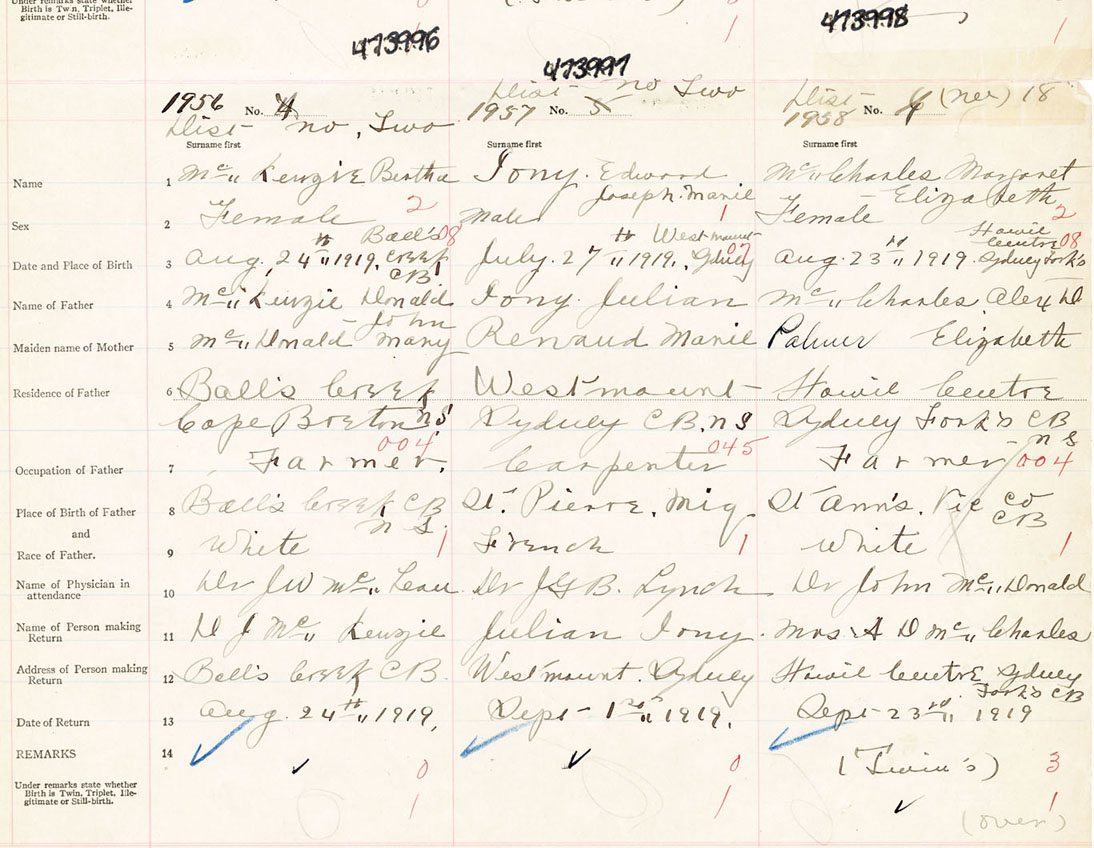 Under remarks state whether
Birth is Twin, Triplet, Ille-
gitimate or Still-birth.
1
1
473996
473997
473998
1956 No. 4
Dist no, Two
Surname first
Dist no Two
1957 No. 5
Surname first
Dist
1958 No. (nee) 18
Surname first
Name 1 Mc" Kenzie Bertha
Tony. Edward
Joseph. Marie
Mc" Charles Margaret
Elizabeth
Sex 2 Female 2
Male 1
Female 2
Date and Place of Birth 3 Aug. 24th" 1919. Ball's Creek CB 08
July. 27th" 1919. Westmount Sydney 07
Aug 23rd" 1919. Howie Centre Sydney Fork's 08
Name of Father 4 Mc" Kenzie Donald John
Tony. Julian
Mc" Charles. Alex D
Maiden name of Mother 5 Mc" Donald Mary
Renaud Marie
Palmer Elizabeth
Residence of Father 6 Ball's Creek
Cape Breton NS
Westmount
Sydney C B. NS
Howie Centre
Sydney Fork's CB
NS
Occupation of Father 7 Farmer. 004
Carpenter 045
Farmer 004
Place of Birth of Father 8 Ball's Creek CB
NS
St. Pierre. Miq
St Ann's. Vic Co
CB
and
Race of Father. 9 White 1
French 1
White 1
Name of Physician in
attendance 10 Dr J W Mc" Lean
Dr J G B. Lynch
Dr John Mc" Donald
Name of Person making
Return 11 D J Mc" Kenzie
Julian Tony.
Mrs A D Mc" Charles
Address of Person making
Return 12 Ball's Creek CB.
Westmount. Sydney
Howie Centre Sydney
Fork's CB
Date of Return 13 Aug. 24th" 1919.
Sept 1919.
Sept 23rd" 1919
REMARKS 14
0
0
(Twin's) 3
Under remarks state whether
Birth is Twin, Triplet, Ille-
gitimate or Still-birth.
1
1
1
(over)